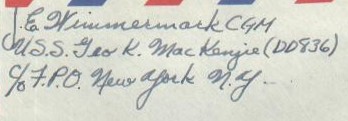 J. E. Wimmermark CGM
U.S.S. Geo K. MacKenzie (DD836)
c/o F.P.O. New York N.Y.